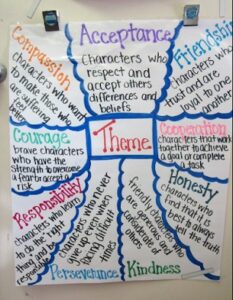 Acceptance
Characters who
respect and
accept others
differences and
beliefs
Friendship
characters who
trust and are
loyal to one
another
Compassion
characters who want
to make those who
are suffering
feel
better
Theme
Courage
brave characters
who have the
strength to overcome
a fear or accept a
risk
Cooperation
characters that work
together to achieve
a goal or complete
a task
Responsibility
characters who learn
to do the right
thing and be
responsible
Perseverance
characters who never
give up even when
facing difficult
times
Kindness
friendly characters who
are generous
considerate and
others
Honesty
characters who
find that it is
best to always
tell the truth